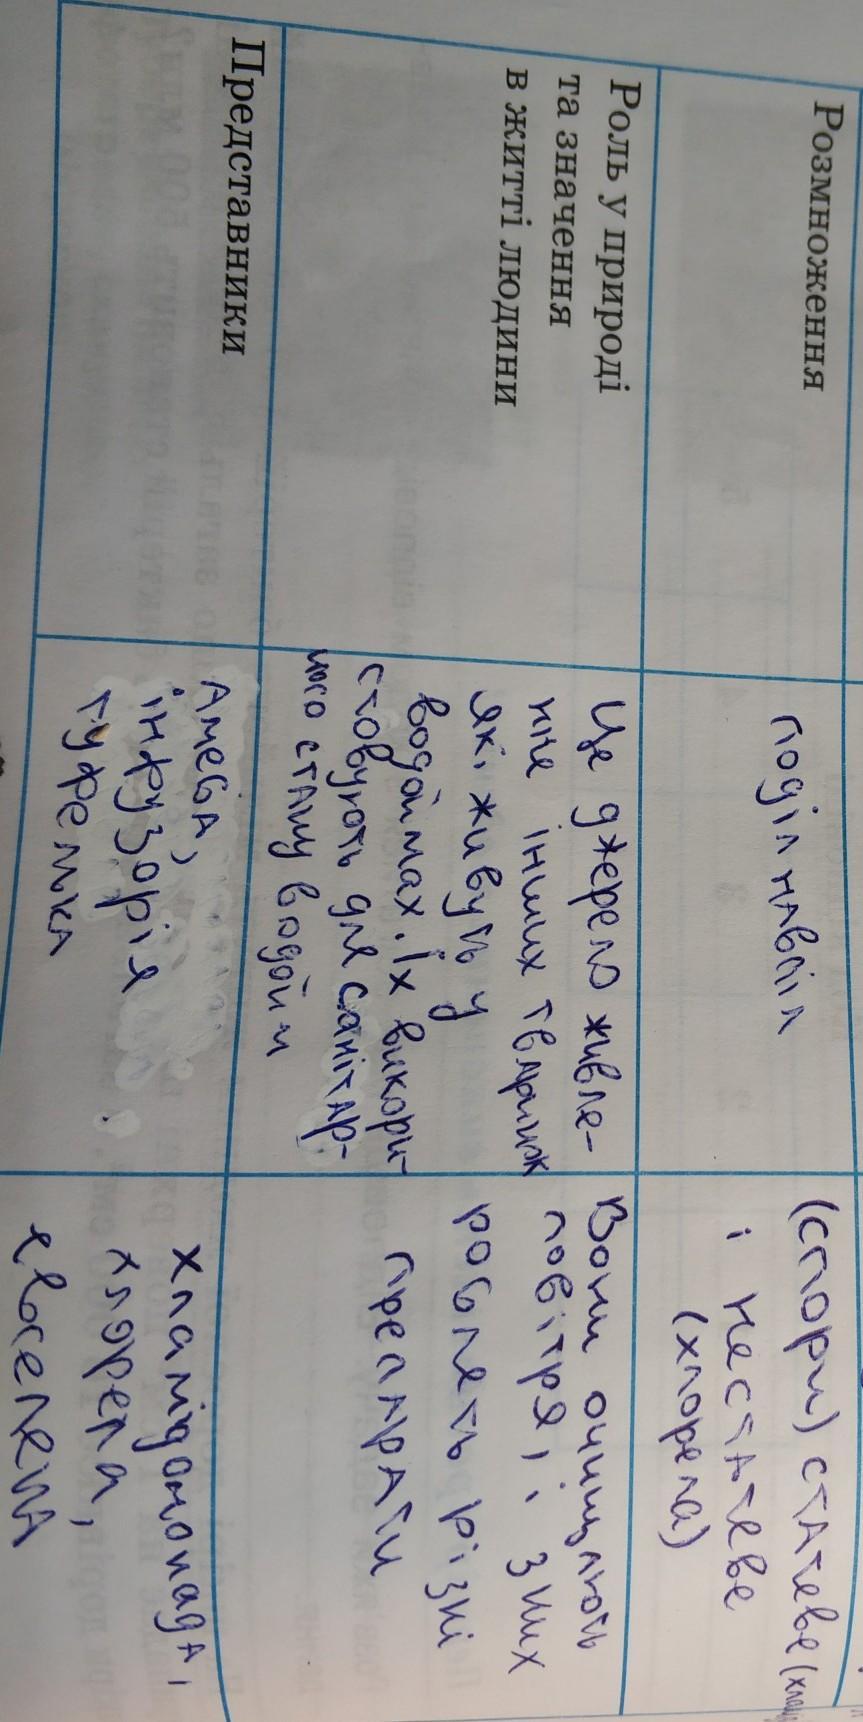 Розмноження
поділ навпіл
(спори) статеве
і нестатеве
(хлорела)
Роль у природі
та значення
в житті людини
Це джерело живле-
ння інших тварин
які живуть у
водоймах. Їх викори-
стовують для санітар-
ного стану водойм
Вони очищають
повітря, і з них
роблять різні
препарати
Представники
Амеба,
інфузорія
туфелька
хламідомонада,
хлорела,
евгелена